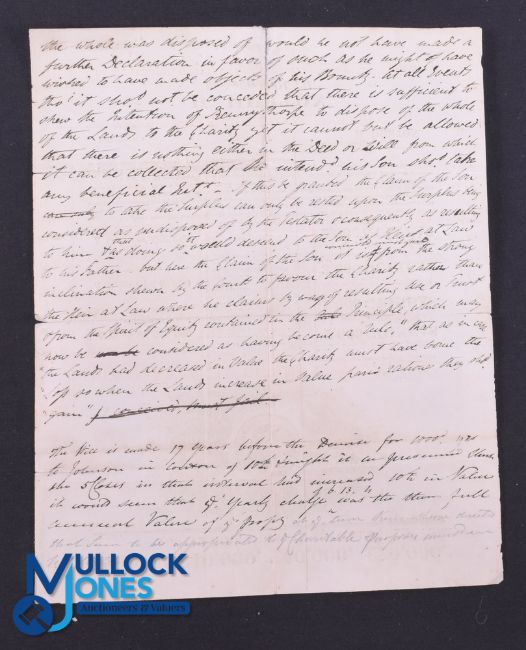 the whole was disposed of would he not have made a
further Declaration in favor of such as he might have
wished to have made objects of his Bounty. Let all Events
tho' it sho.d not be conceded that there is sufficient to
shew the Intention of to dispose of the whole
of the Lands to the Charity yet it cannot but be allowed
that there is nothing either in the Deed or Will from which
it can be collected that he intend.d his Son sho.d take
any beneficial Int.t - If this be granted the Claim of the Son
to take the Surplus can only be rested upon the Surplus being
considered as undisposed of by the Testator & consequently as resulting
to him & as doing so it would descend to the Son as Heir at Law
to his Father. but here the Claim of the Son is from the strong
inclination shewn by the Court to favour the Charity rather than
the Heir at Law where he claims by way of resulting Use or Trust
& from the Spirit of Equity contained in the Principle, which may
now be considered as having become a rule, "that as in case
"the Lands had decreased in Value the Charity must have borne the
"loss so when the Lands increase in Value pari ratione they sho.d
"gain"
The Will is made 17 Years before the Demise for 1000 Years
to Johnson in
in that interval had increased in Value
it would seem that y.e Yearly charge was the then full
annual Value of y.e
that Sum to be appropriated to y.e Charitable purposes
MULLOCK
JONES
Auctioneers & Valuers